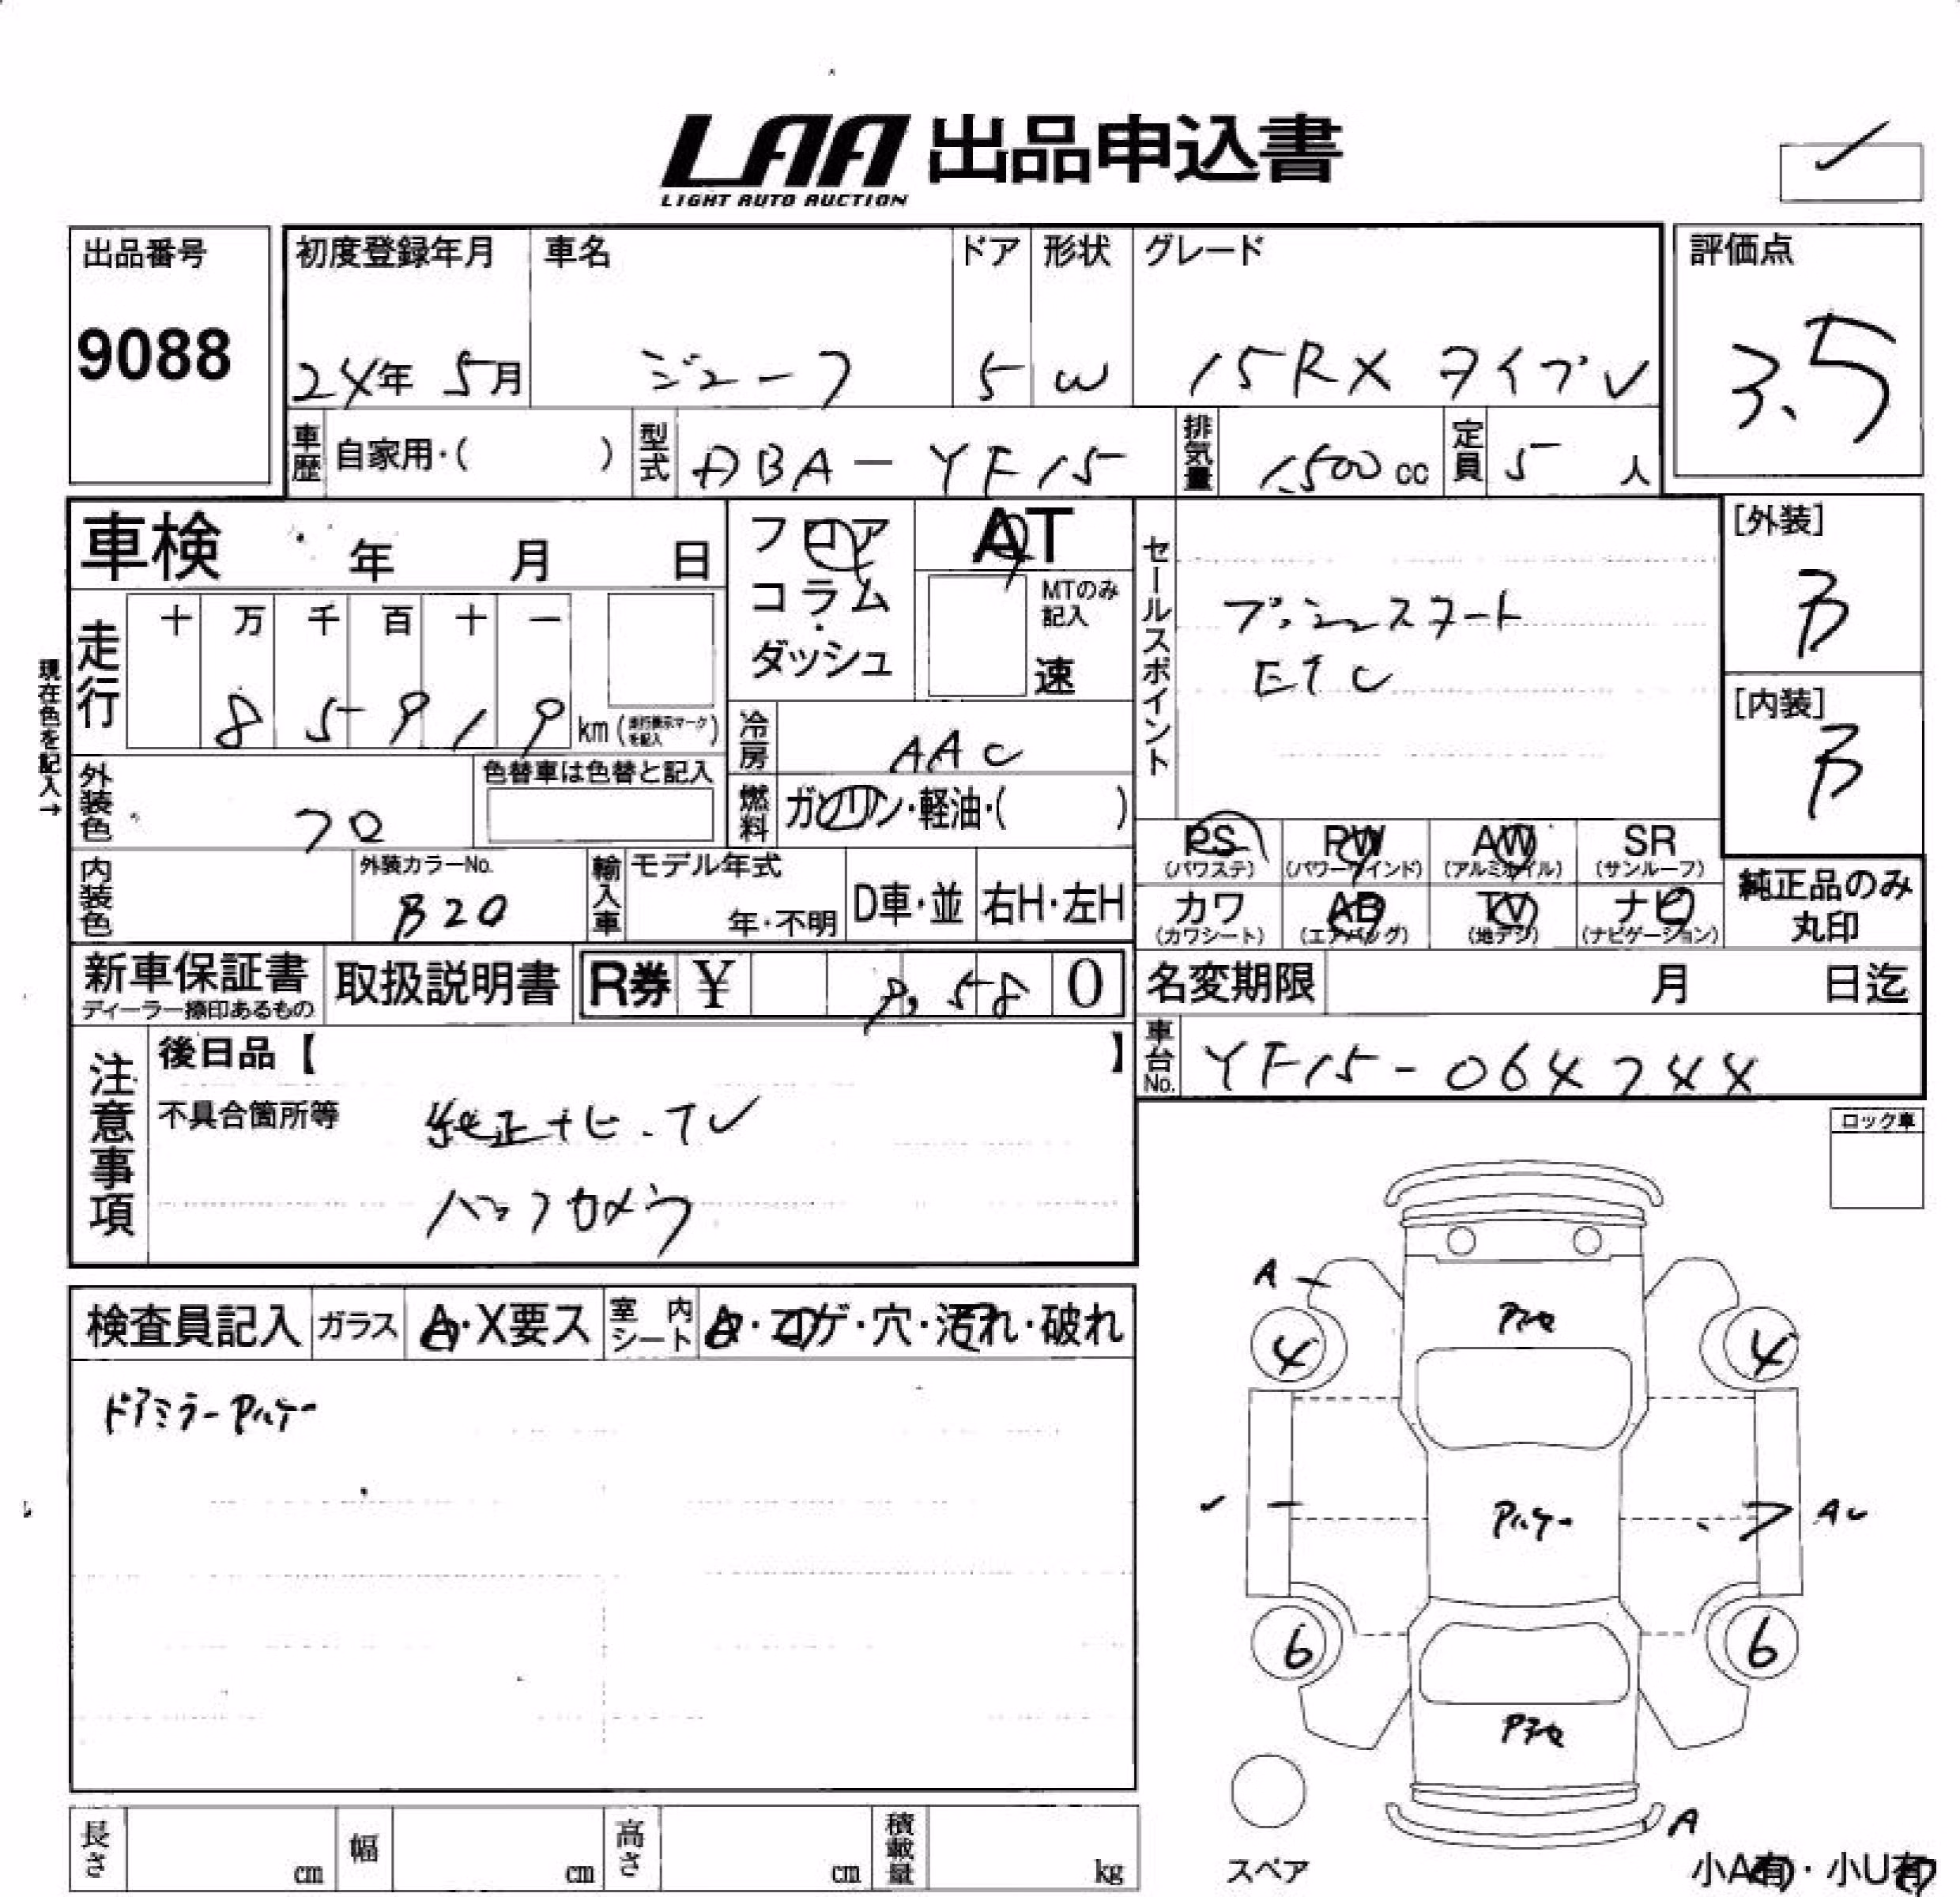 LAA 出品申込書
LIGHT AUTO AUCTION
出品番号
9088
初度登録年月 車名 ドア 形状 グレード
24年 5月 ジューク 5 W 15RX タイプV
評価点
3.5
車歴 自家用・( ) 型式 DBA-YF15 排気量 1,500 cc 定員 5 人
車検 年 月 日
フロア
コラム
・
ダッシュ
AT
MTのみ
記入
速
走行 十 万 千 百 十 一
8 5 9 1 9 km (走行表示マークを記入)
現在色を記入→
外装色 クロ
色替車は色替と記入
冷房 AAC
燃料 ガソリン・軽油・( )
セールスポイント
プッシュスタート
ETC
[外装]
B
[内装]
B
内装色
外装カラーNo.
B20
輸入車 モデル年式
年・不明
D車・並 右H・左H
PS (パワステ) PW (パワーウインド) AW (アルミホイル) SR (サンルーフ)
カワ (カワシート) AB (エアバッグ) TV (地デジ) ナビ (ナビゲーション)
純正品のみ
丸印
新車保証書
ディーラー捺印あるもの
取扱説明書
R券 ¥ 9,580
名変期限 月 日迄
車台No. YF15-064744
注意事項
後日品【 】
不具合箇所等 純正ナビ.TV
バックカメラ
ロック車
検査員記入 ガラス A・X要ス 室内シート A・コゲ・穴・汚れ・破れ
ドアミラー Pハゲー
A
Pアセ
4
4
Pハゲー
AU
6
6
Pアセ
A
スペア
小A有・小U有
長さ cm 幅 cm 高さ cm 積載量 kg